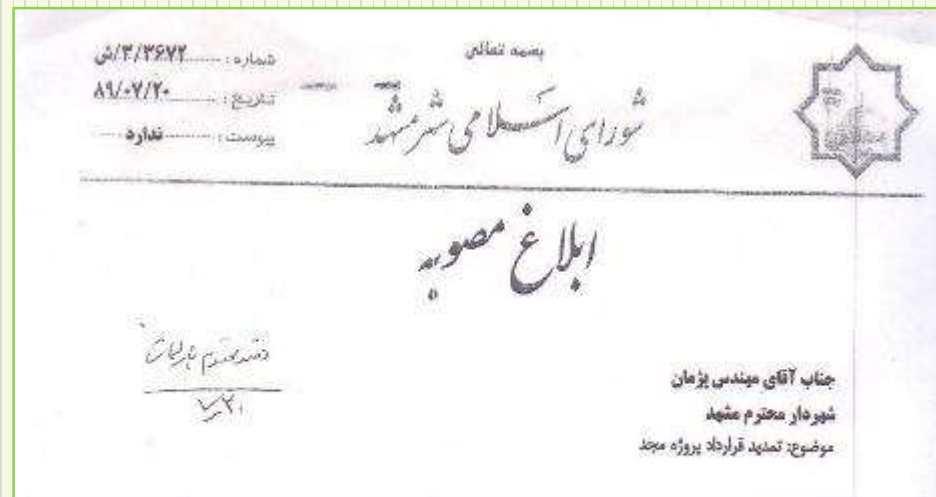 بسمه تعالی
شورای اسلامی شهر مشهد
شماره : ........۳/۳۶۷۲/ش
تاریخ : ........۸۹/۰۷/۲۰
پیوست : ........ندارد.....
ابلاغ مصوبه
جناب آقای مهندس پژمان
شهردار محترم مشهد
موضوع: تمدید قرارداد پروژه مجد